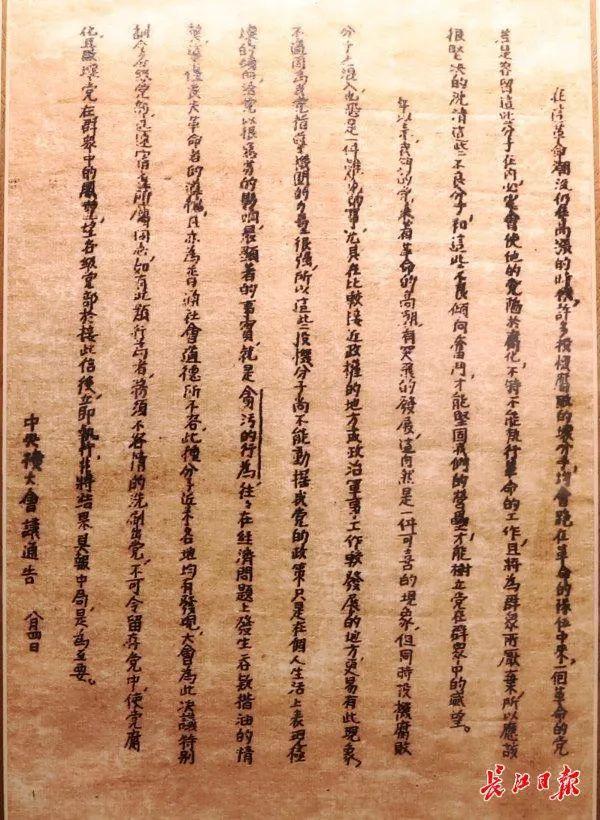 在這革命潮流仍在高漲的時候，許多投機腐敗的壞分子，均會跑在革命的隊伍中來，一個革命的党
若是容留這些分子在內，必定會使他的党陷於腐化，不特不能執行革命的工作，且將為群眾所厭棄。所以應該
很堅決的洗清這些不良分子，和這些不良傾向奮鬥，才能堅固我們的營壘，才能樹立党在群眾中的威望。
年以來我們的党乘着革命的高潮，有突飛的發展，這向然是一件可喜的現象，但同時投機腐敗
分子之混入，也恐是一件難免的事，尤其在比較接近政權的地方或政治軍事工作較發展的地方，更易有此現象，
不過因為我党指導機關的力量很強，所以這些投機分子尚不能動搖我党的政策，只是在個人生活上表現極
壞的傾向，給党以很惡劣的影響，最顯著的事實，就是貪污的行為，往々在經濟問題上發生吞欵揩油的情
弊，這僅喪失革命者的道德，且亦為普通社會道德所不容，此種分子近來各地均有發現，大會為此決議特別
訓令各級党部，迅速審查所屬同志，如有此類行為者，務須不容情的洗刷出党，不可令留存党中，使党腐
化，且敗壞党在群眾中的威望。望各級党部於接此信後，立即執行，并將結果具報中局，是為至要。
中央擴大會議通告 八月四日
長江日報